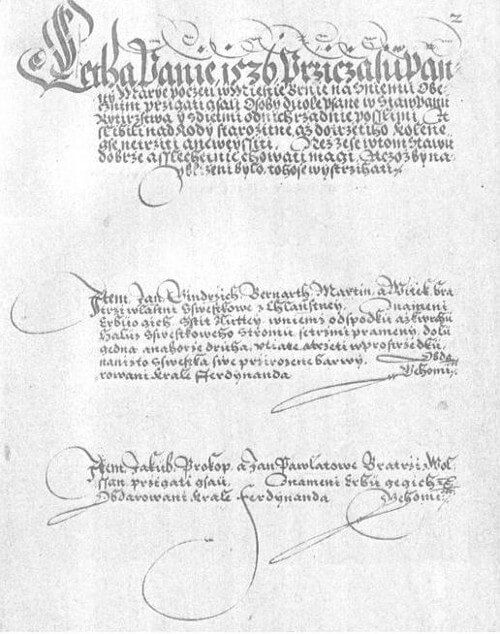 2
Letha Panie 1526 Prziczasu Pan-
ny Marye poczetj wMiestie Brnie na Sniemu Obe
cznim przigati gsau Osoby dwole psane w Staw panu
Rytirzstwa y sdietmi od nich rzadnie posslimi
nad Rody starozitne az dotrzetiho kolene
gse neirziti aneweyssiti. Nez zese wtom Stawu
dobrze asslechetnie chowati magi. Nezozby na
bizeni bylo, tohose wystrzihati
Item Jan Gindrzich Bernarth Martin, a Witek bra
trzi wlastni Sswestkowe zChlaustney. Znameni
Erbu gich, Sstit zlutey, wniemz odspodku azkwrchu
halus Sswestkoweho Stromu setrzmi prameny, dolu
gedna anahorze druha, wprostrzedku
nanisto Sswestka swe przirozene barwy. Obda
rowani krale Ferdynanda Czehomi
Item Jakub, Prokop, a Jan Pawlatowe Bratrzi Wol
ssan przigati gsau. Znameni Erbu gegich
Obdarowani krale Ferdynanda Czehomi